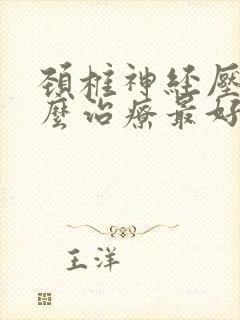 頚椎神経壓
麼治療最好
王洋